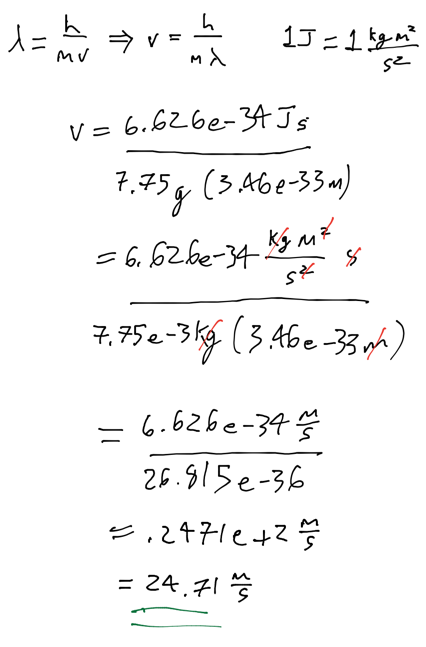 λ = h/mv ⇒ v = h/mλ 1J = 1 kg m²/s²
v = 6.626e-34 Js
7.75g (3.46e-33m)
= 6.626e-34 kg m²/s² s
7.75e-3kg (3.46e-33m)
= 6.626e-34 m/s
26.815e-36
= .2471e+2 m/s
= 24.71 m/s